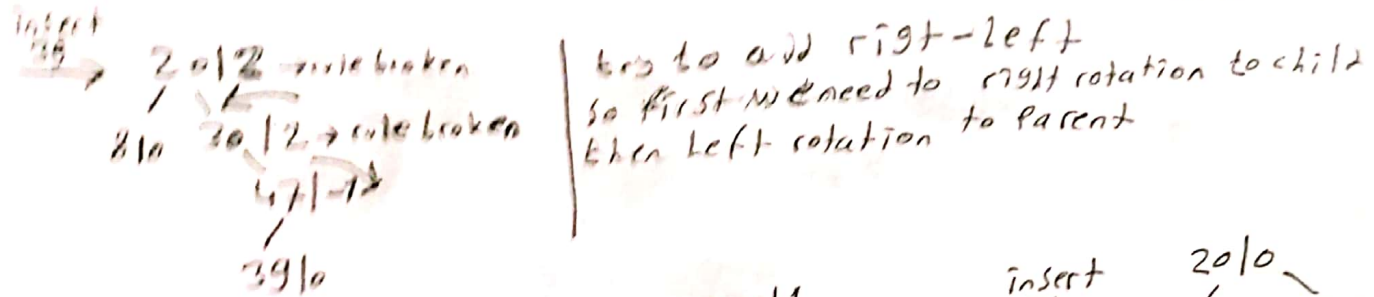 insert
39
20|2 → rule broken
8|0 30|2 → rule broken
47|-1
39|0
try to add rigt-left
so first we need to right rotation to child
then Left rotation to Parent
insert 20|0